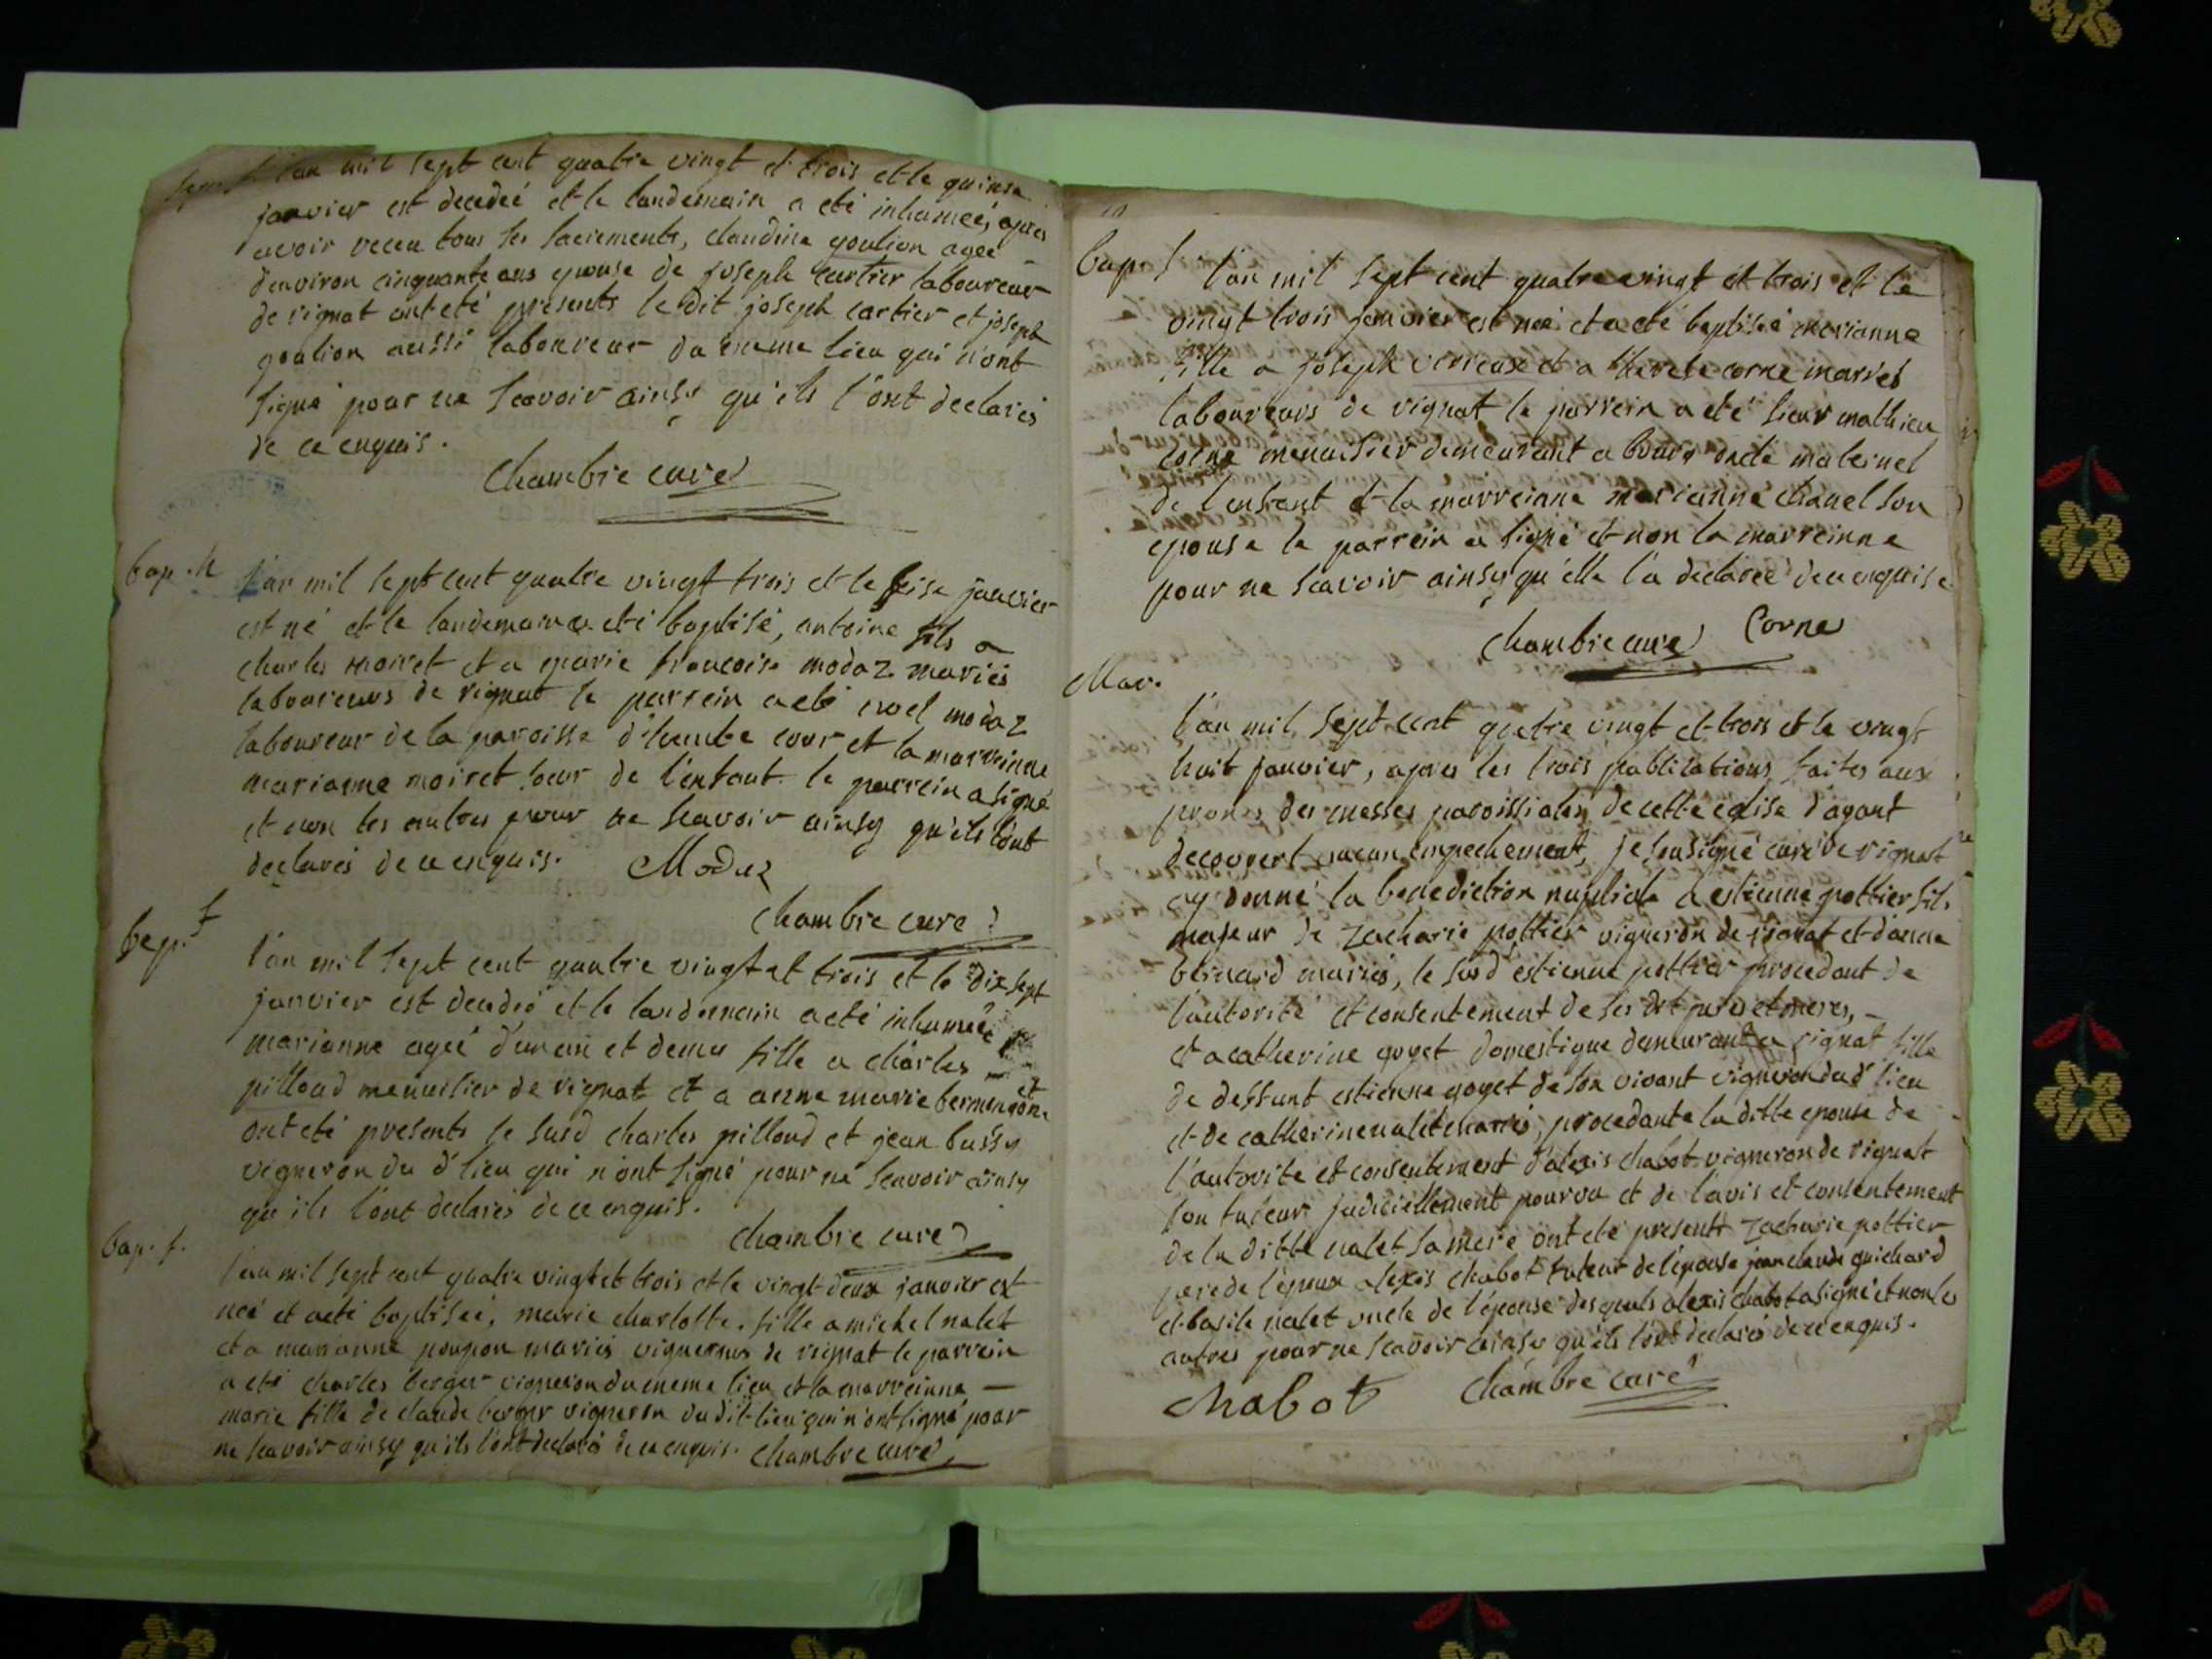 l'an mil sept cent quatre vingt et trois et le quinse
janvier est decedeé et le landemain a eté inhumeé, apres
avoir receu tous ses sacrements, claudine goulion ageé
d'environ cinquante ans epouse de joseph cartier laboureur
de rignat ont eté presents le dit joseph cartier et joseph
goulion aussi laboureur du meme lieu qui n'ont
signé pour ne scavoir ainsy qu'ils l'ont declarés
de ce enquis.
Chambre curé
bap. 
l'an mil sept cent quatre vingt trois et le seise janvier
est né et le landemain a eté baptisé, antoine fils a
charles moiret et a marie francoise modaz mariés
laboureurs de rignat le parrein a eté noel modaz
laboureur de la paroisse d'haute cour et la marreinne
marianne moiret soeur de l'enfant le parrein a signé
et non les autres pour ne scavoir ainsy qu'ils l'ont
declarés de ce enquis. Modaz
chambre curé
sep. f
l'an mil sept cent quatre vingt et trois et le dix sept
janvier est decedeé et le landemain a eté inhumeé
marianne ageé d'un an et demy fille a charles
pilloud menuisier de rignat et a anne marie
ont eté presents le susd charles pilloud et jean buisy
vigneron du d' lieu qui n'ont signé pour ne scavoir ainsy
qu'ils l'ont declarés de ce enquis.
chambre curé
bap. f.
l'an mil sept cent quatre vingt et trois et le vingt deux janvier est
neé et a eté baptiseé, marie charlotte, fille a michel nalet
et a marianne poupon mariés vignerons de rignat le parrein
a eté charles berger vigneron du meme lieu et la marreinne —
marie fille de claude berger vigneron dudit lieu qui n'ont signé pour
ne scavoir ainsy qu'ils l'ont declarés de ce enquis. chambre curé
bap. f
l'an mil sept cent quatre vingt et trois et le
vingt trois janvier est neé et a eté baptiseé marianne
fille a joseph et a therese corne mariés
laboureurs de rignat le parrein a eté sieur mathieu
corne menuisier demeurant a bourg oncle maternel
de l'enfant et la marreinne marianne chanel son
epouse le parrein a signé et non la marreinne
pour ne scavoir ainsy qu'elle l'a declareé de ce enquise
chambre curé Corne
Mar.
l'an mil sept cent quatre vingt et trois et le vingt
huit janvier, apres les trois publications faites aux
prones des messes paroissiales de cette eglise n'ayant
decouvert aucun empechement, je soussigné curé de rignat
ay donné la benediction nuptiale a estienne pottier fils
majeur de zacharie pottier vigneron de rignat et d'anne
bernard mariés, le susd estienne pottier procedant de
l'autorité et consentement de ses dit pere et mere, —
et a catherine goyet domestique demeurant a rignat fille
de deffunt estienne goyet de son vivant vigneron dud' lieu
et de catherine nalet mariés, procedante la ditte epouse de
l'autorité et consentement d'alexis chabot vigneron de rignat
son tuteur judiciellement pourvu et de l'avis et consentement
de la ditte nalet sa mere ont eté presents zacharie pottier
pere de l'epoux alexis chabot tuteur de l'épouse jean claude guichard
et basile nalet oncle de l'épouse desquels alexis chabot a signé et non les
autres pour ne scavoir ainsy qu'ils l'ont declarés de ce enquis.
chabot chambre curé